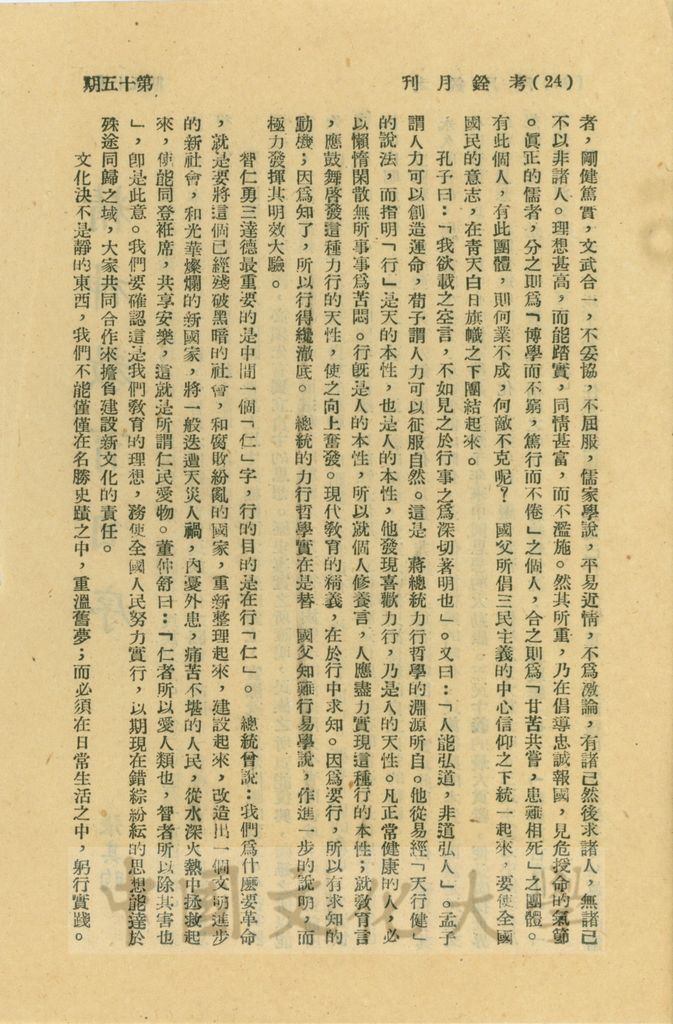 (24) 考銓月刊
第十五期
者，剛健篤實，文武合一，不妥協，不屈服，儒家學說，平易近情，不爲激論，有諸己然後求諸人，無諸己
不以非諸人。理想甚高，而能踏實，同情甚富，而不濫施。然其所重，乃在倡導忠誠報國，見危授命的氣節
。眞正的儒者，分之則爲「博學而不窮，篤行而不倦」之個人，合之則爲「甘苦共嘗，患難相死」之團體。
有此個人，有此團體，則何業不成，何敵不克呢？　國父所倡三民主義的中心信仰之下統一起來，要使全國
國民的意志，在青天白日旗幟之下團結起來。
孔子曰：「我欲載之空言，不如見之於行事之爲深切著明也」。又曰：「人能弘道，非道弘人」。孟子
謂人力可以創造運命，荀子謂人力可以征服自然。這是　蔣總統力行哲學的淵源所自。他從易經「天行健」
的說法，而指明「行」是天的本性，也是人的本性，他發現喜歡力行，乃是人的天性。凡正常健康的人，必
以懶惰閑散無所事事爲苦悶。行旣是人的本性，所以就個人修養言，人應盡力實現這種行的本性；就敎育言
，應鼓舞啓發這種力行的天性，使之向上奮發。現代敎育的精義，在於行中求知。因爲要行，所以有求知的
動機；因爲知了，所以行得纔澈底。　總統的力行哲學實在是替　國父知難行易學說，作進一步的說明，而
極力發揮其明效大驗。
智仁勇三達德最重要的是中間一個「仁」字，行的目的是在行「仁」。　總統曾說：我們爲什麼要革命
，就是要將這個已經殘破黑暗的社會，和腐敗紛亂的國家，重新整理起來，建設起來，改造出一個文明進步
的新社會，和光華燦爛的新國家，將一般迭遭天災人禍，內憂外患，痛苦不堪的人民，從水深火熱中拯救起
來，使能同登袵席，共享安樂，這就是所謂仁民愛物。董仲舒曰：「仁者所以愛人類也，智者所以除其害也
」，卽是此意。我們要確認這是我們敎育的理想，務使全國人民努力實行，以期現在錯綜紛紜的思想能達於
殊途同歸之域，大家共同合作來擔負建設新文化的責任。
文化決不是靜的東西，我們不能僅僅在名勝史蹟之中，重溫舊夢；而必須在日常生活之中，躬行實踐。